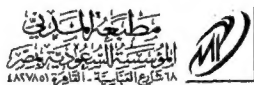 مطبعة المدني
المؤسسة السعودية بمصر
٦٨ شارع العباسية - القاهرة ت: ٤٨٢٧٨٥١